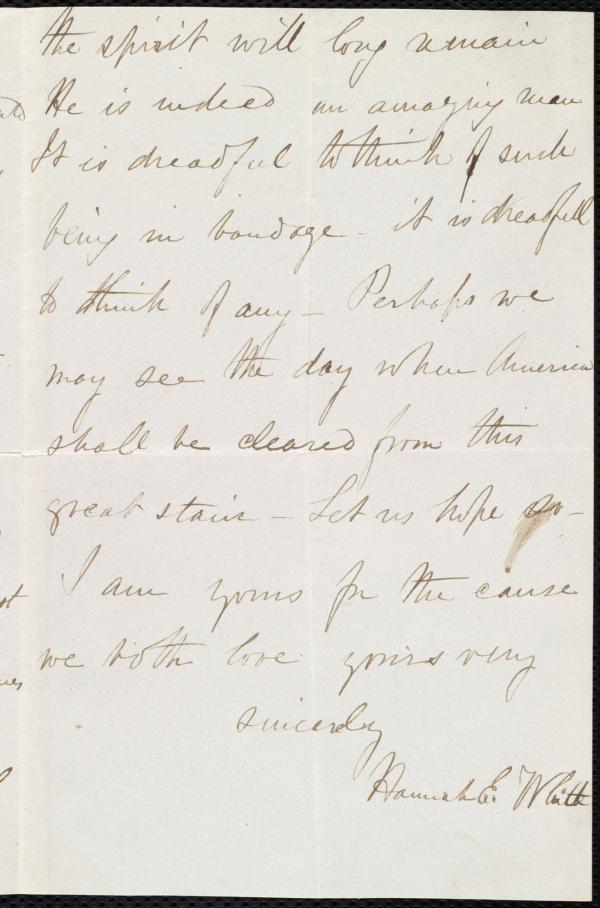 the spirit will long remain
He is indeed an amazing man
It is dreadful to think of such
being in bondage - it is dreadfull
to think of any - Perhaps we
may see the day when America
shall be cleared from this
great stain - Let us hope so -
I am yours for the cause
we both love yours very
sincerely
Hannah E. White